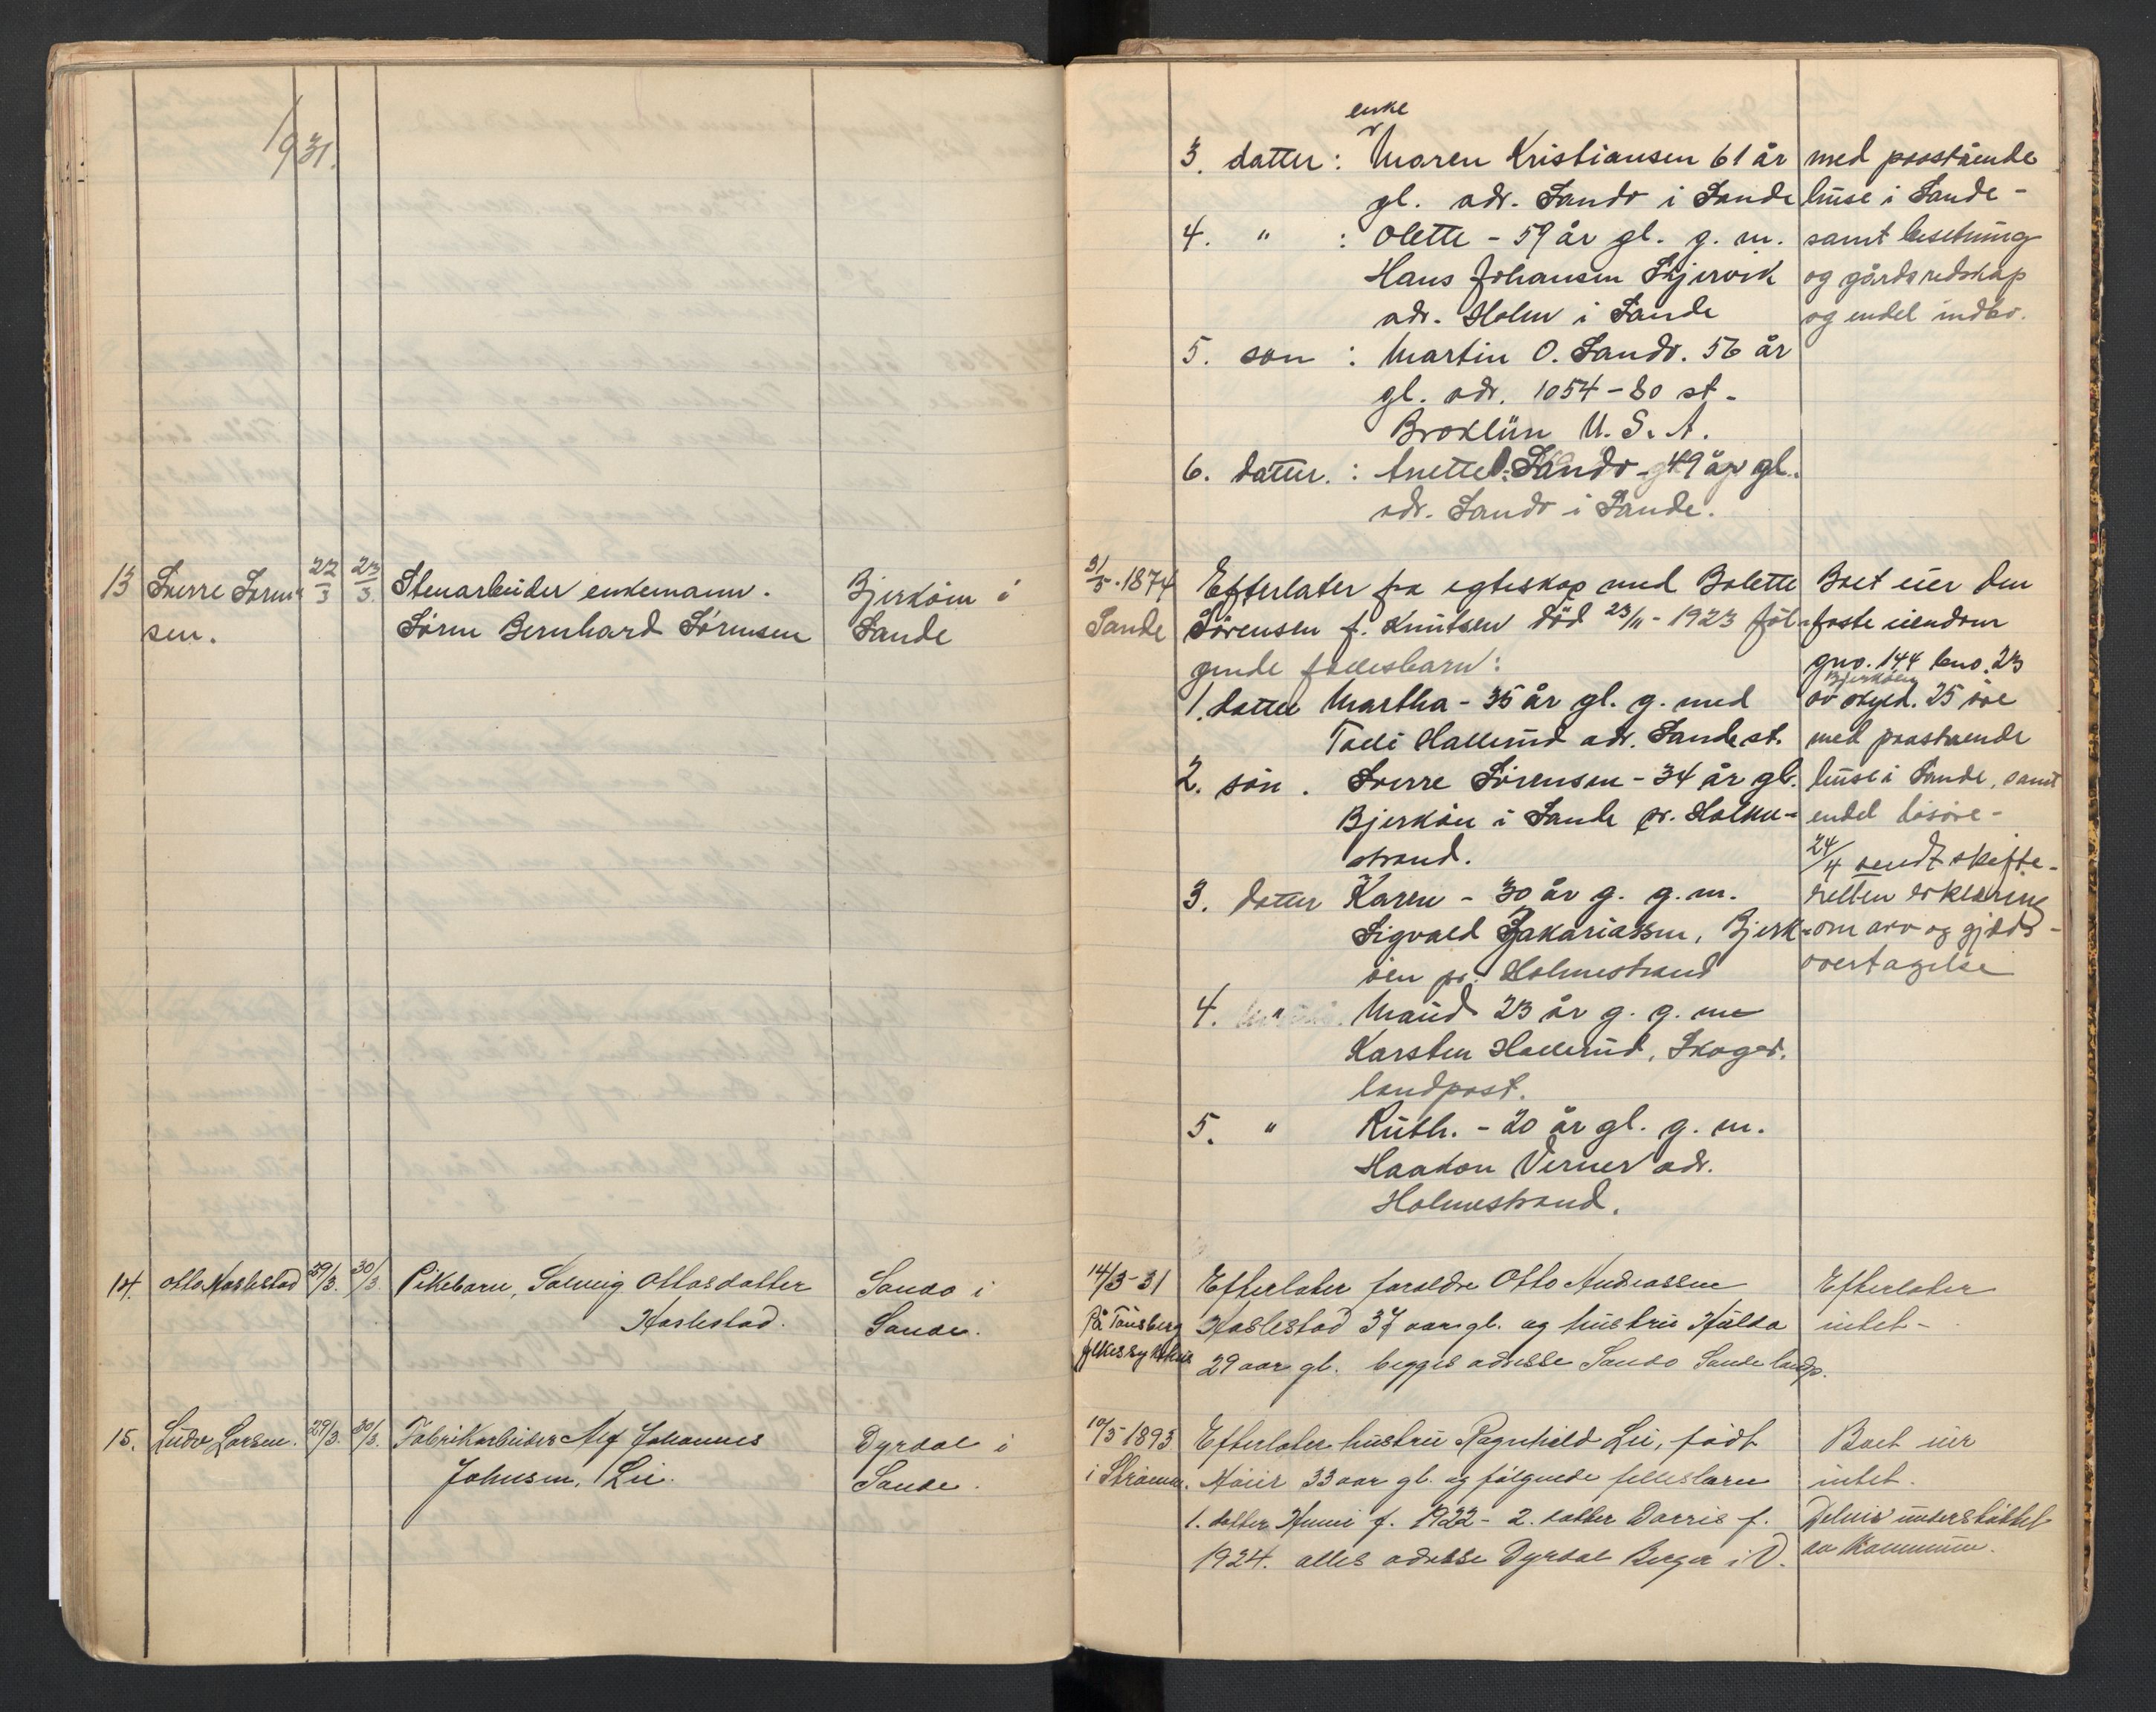 1931.
13 Sverre Sørn- 22/3 23/3. Stenarbeider enkemann. Bjerkøen i
sen. Sørn Bernhard Sørensen Sande
14. Otto Haslestad 29/3. 30/3 Pikebarn, Solveig Ottosdatter Sando i
Haslestad. Sande.
15. Ludv Larsen. 29/3. 30/3. Fabrikarbeider Alf Johannes Dyrdal i
Johnsen, Lie. Sande.
enke
3. datter: Maren Kristiansen 61 år med paastående
gl. adr. Sando i Sande huse i Sande -
4. " : Olette - 59 år gl. g. m. samt besetning
Hans Johansen Skjervik og gårdsredskap
adr. Holm i Sande og endel indbo.
5. søn : Martin O. Sando. 56 år
gl. adr. 1054 - 80 st.
Broklün U. S. A.
6. datter. : Anette Sando - 49 år gl.
adr. Sando i Sande.
31/5 - 1874 Efterlater fra egteskap med Bolette Boet eier den
Sande Sørensen f. Knutsen død 23/11 - 1923 føl- faste eiendom
gende fellesbarn: gno. 144 bno. 23
Bjerkøen
1. datter Martha - 35 år gl. g. med av skyld. 25 øre
Hallerud adr. Sande st. med paastaaende
2. søn . Sverre Sörensen - 34 år gl. huse i Sande, samt
Bjerkøen i Sande pr. Holme- endel løsøre -
strand. 24/4 sendt skifte-
3. datter Karen - 30 år g. g. m. retten erklæring
Sigvald Zakariassen, Bjerk- om arv og gjelds-
öen pr. Holmestrand overtagelse
4. " Maud 23 år g. g. m
Karsten Hallerud, Skoger.
landpost.
5. " Ruth. - 20 år gl. g. m.
Haakon Verner adr.
Holmestrand.
14/3 - 31 Efterlater foreldre Otto Andreassen Efterlater
På Tønsberg Haslestad 37 aar gl. og hustru Hulda intet -
fylkessykehus 29 aar gl. begges adresse Sando Sande landp.
10/5 - 1893 Efterlater hustru Ragnhild Lie, født Boet eier
i Strømm. Høier 33 aar gl. og følgende fellesbarn intet.
1. datter f. 1922 - 2. datter Dorris f. Delvis understøttet
1924. alles adresse Dyrdal Berger i D. av Kommunen.